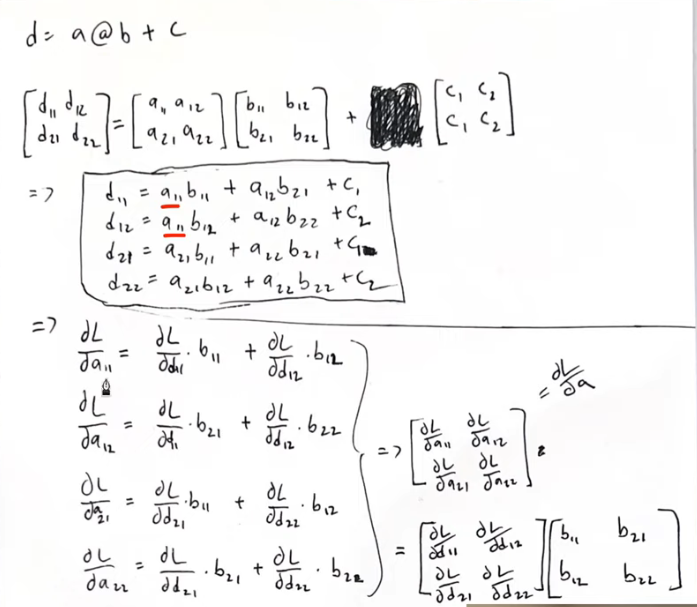 d = a @ b + c
[d₁₁ d₁₂; d₂₁ d₂₂] = [a₁₁ a₁₂; a₂₁ a₂₂] [b₁₁ b₁₂; b₂₁ b₂₂] + [c₁ c₂; c₁ c₂]
=> d₁₁ = a₁₁b₁₁ + a₁₂b₂₁ + c₁
d₁₂ = a₁₁b₁₂ + a₁₂b₂₂ + c₂
d₂₁ = a₂₁b₁₁ + a₂₂b₂₁ + c₁
d₂₂ = a₂₁b₁₂ + a₂₂b₂₂ + c₂
=> ∂L/∂a₁₁ = ∂L/∂d₁₁ · b₁₁ + ∂L/∂d₁₂ · b₁₂
∂L/∂a₁₂ = ∂L/∂d₁ · b₂₁ + ∂L/∂d₁₂ · b₂₂
∂L/∂a₂₁ = ∂L/∂d₂₁ · b₁₁ + ∂L/∂d₂₂ · b₁₂
∂L/∂a₂₂ = ∂L/∂d₂₁ · b₂₁ + ∂L/∂d₂₂ · b₂₂
= ∂L/∂a
=> [∂L/∂a₁₁ ∂L/∂a₁₂; ∂L/∂a₂₁ ∂L/∂a₂₂]
= [∂L/∂d₁₁ ∂L/∂d₁₂; ∂L/∂d₂₁ ∂L/∂d₂₂] [b₁₁ b₂₁; b₁₂ b₂₂]